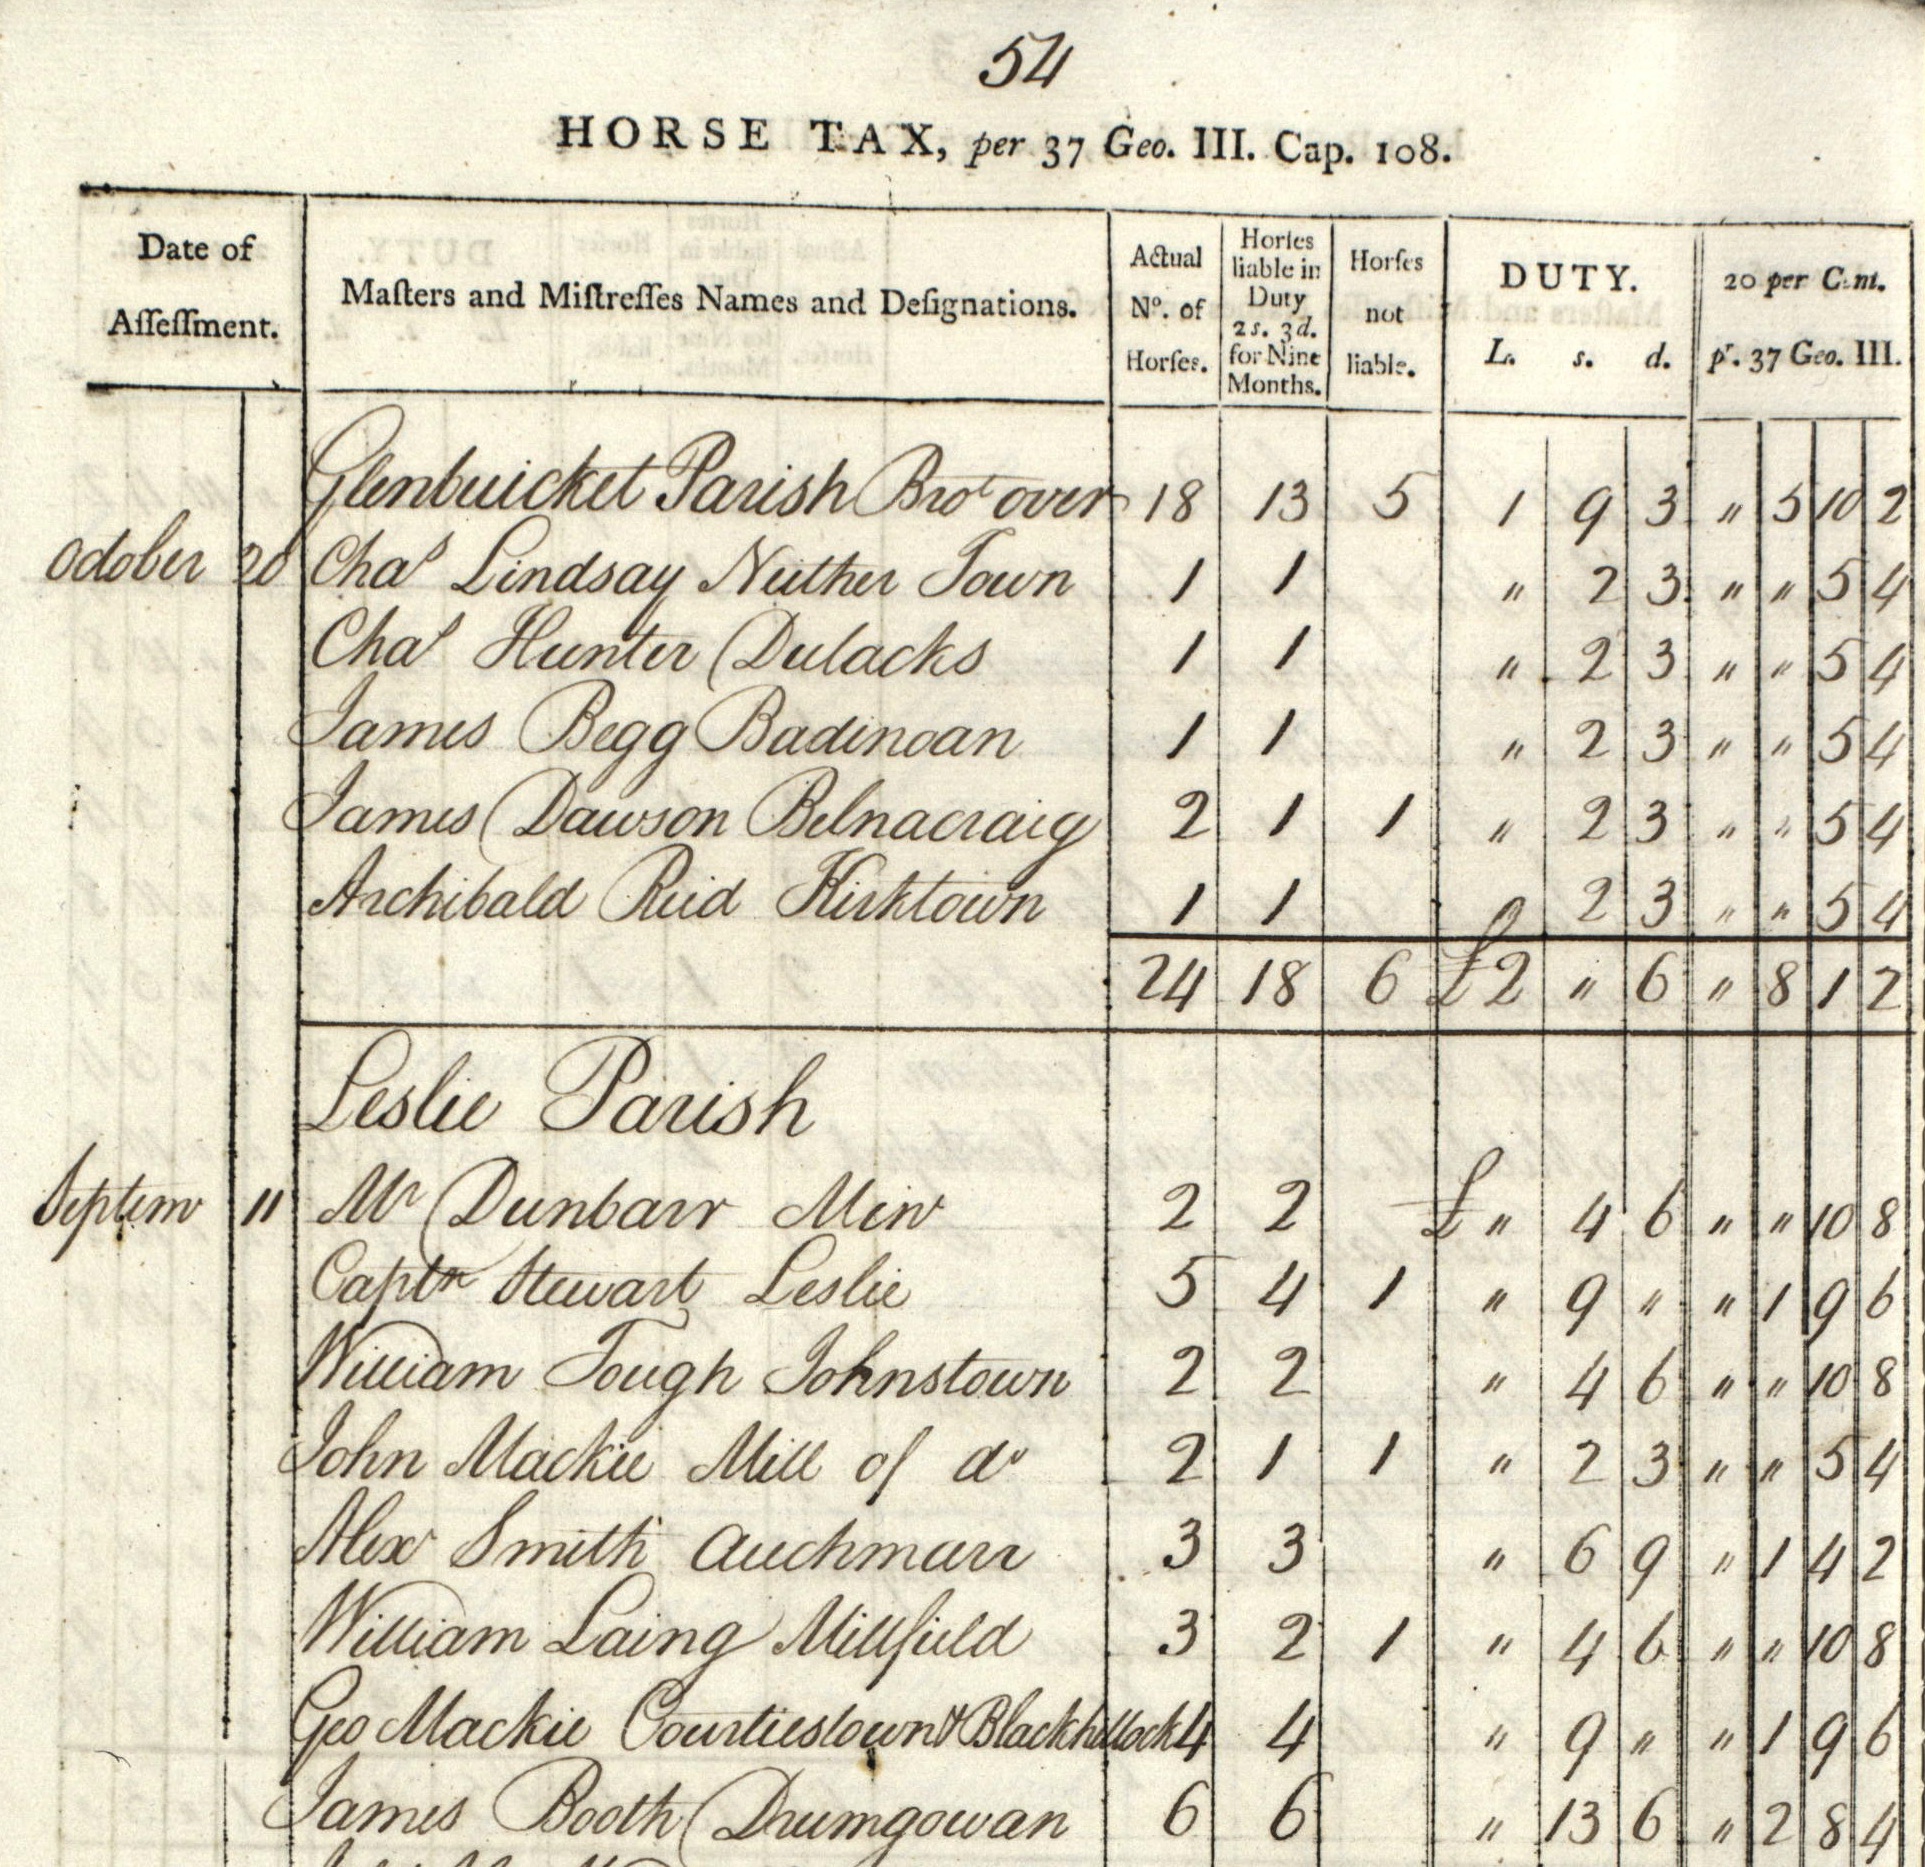 54
HORSE TAX, per 37 Geo. III. Cap. 108.
Date of Assessment. Masters and Mistresses Names and Designations. Actual No. of Horses. Horses liable in Duty 2s. 3d. for Nine Months. Horses not liable. DUTY. L. s. d. 20 per Cent. pr. 37 Geo. III.
Glenbuicket Parish Brot over 18 13 5 1 9 3 " 5 10 2
October 20 Chas Lindsay Neither Town 1 1 " 2 3 " " 5 4
Chas Hunter Dulacks 1 1 " 2 3 " " 5 4
James Begg Badinoan 1 1 " 2 3 " " 5 4
James Dawson Belnacraig 2 1 1 " 2 3 " " 5 4
Archibald Reid Kirktown 1 1 2 3 " " 5 4
24 18 6 £2 " 6 " 8 1 2
Leslie Parish
Septemr 11 Mr Dunbarr Minr 2 2 £ " 4 6 " " 10 8
Captn Stewart Leslie 5 4 1 " 9 " " 1 9 6
William Tough Johnstown 2 2 " 4 6 " " 10 8
John Mackie Mill of do 2 1 1 " 2 3 " " 5 4
Alexr Smith Auchmarr 3 3 " 6 9 " 1 4 2
William Laing Millfield 3 2 1 " 4 6 " " 10 8
Geo Mackie Courtiestown & Blackhillock 4 4 " 9 " " 1 9 6
James Booth Drumgowan 6 6 " 13 6 " 2 8 4